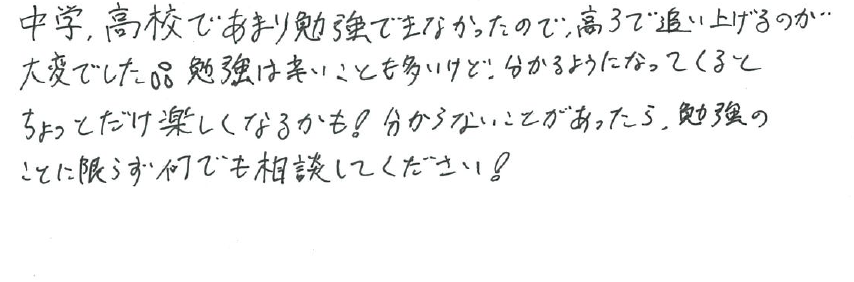 中学,高校であまり勉強できなかったので,高3で追い上げるのが
大変でした。勉強は辛いことも多いけど,分かるようになってくると
ちょっとだけ楽しくなるかも!分からないことがあったら,勉強の
ことに限らず何でも相談してください!